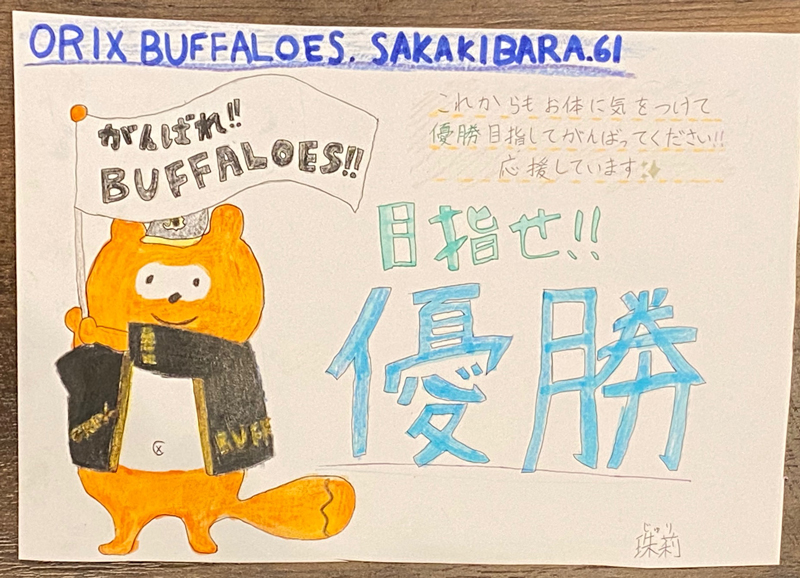 ORIX BUFFALOES. SAKAKIBARA.61
がんばれ!!
BUFFALOES!!
これからもお体に気をつけて
優勝目指してがんばってください!!
応援しています✨
目指せ!!
優勝
BUFF
じゅり
珠莉